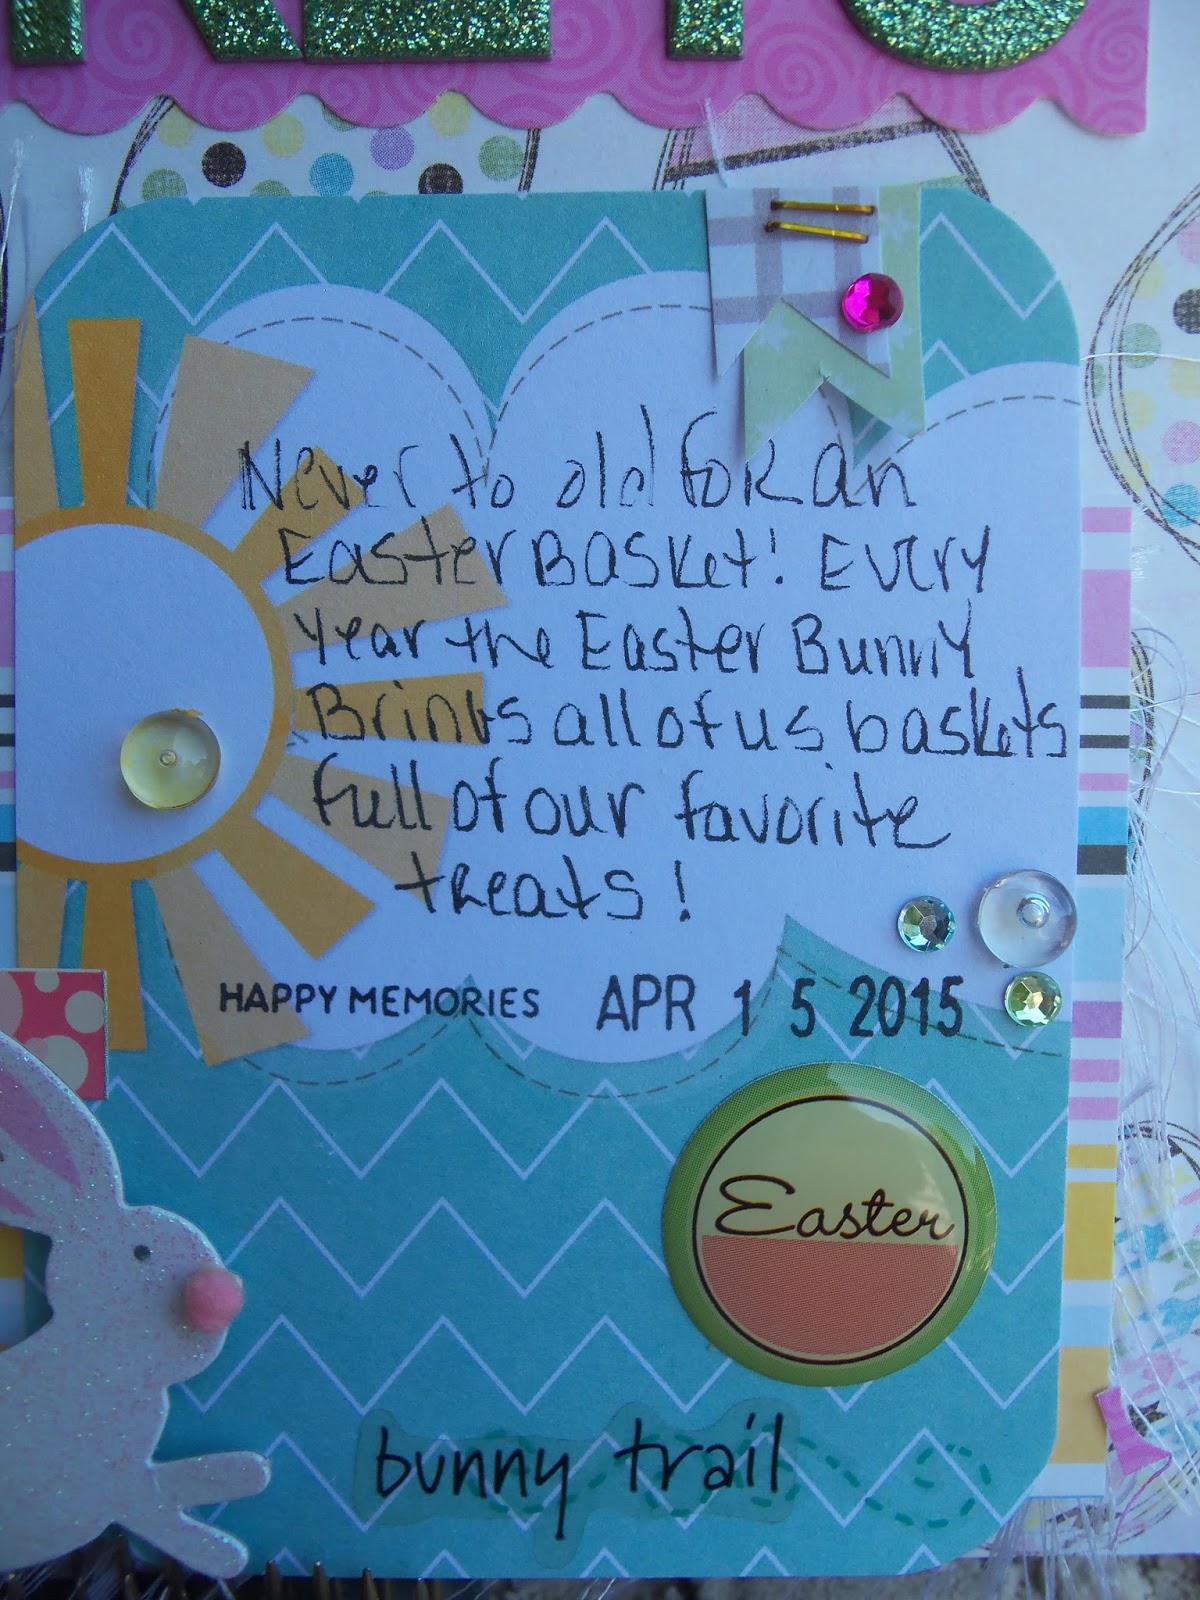 Never to old for an
Easter Basket! Every
year the Easter Bunny
Brings all of us baskets
full of our favorite
treats!
HAPPY MEMORIES APR 15 2015
Easter
bunny trail